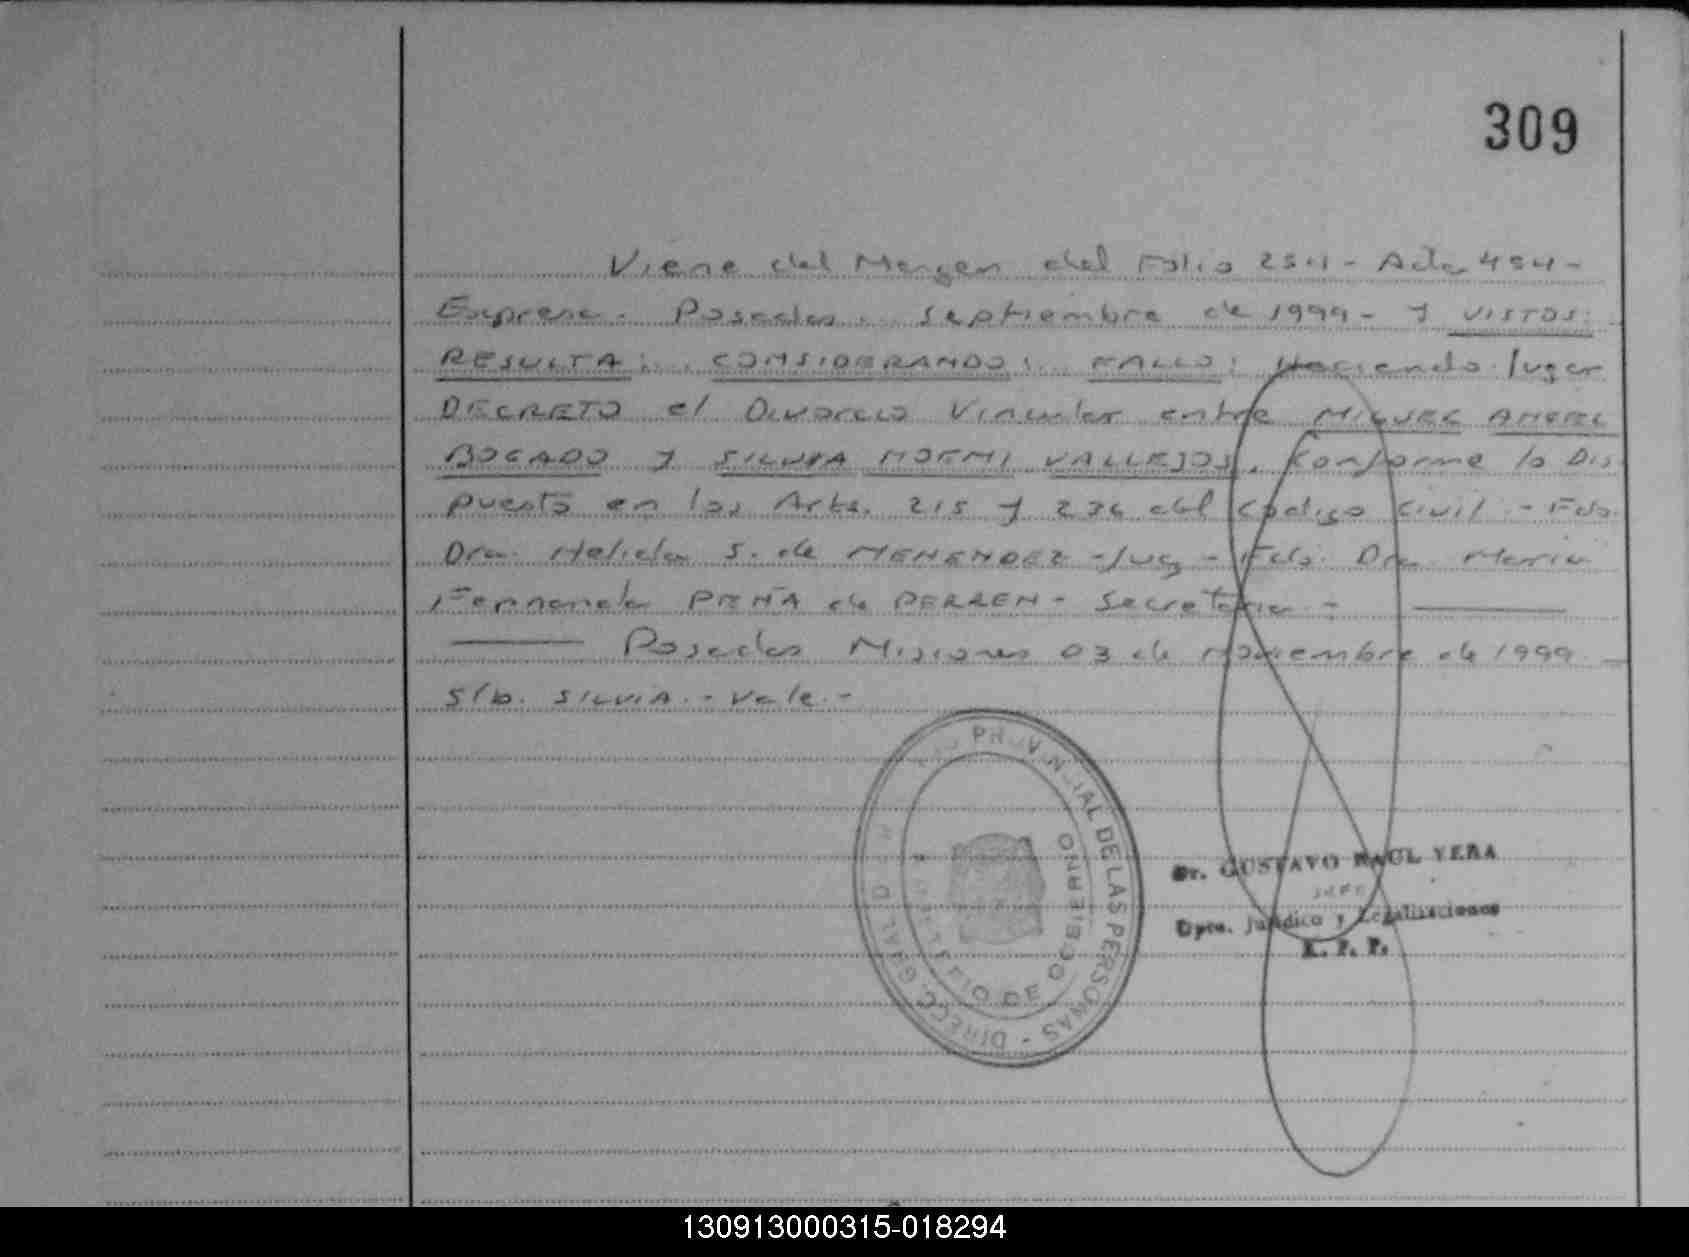 309
Viene del Margen del Folio 254 - Acta 454 -
Expresa. Posadas... septiembre de 1999 - Y VISTOS:
RESULTA:... CONSIDERANDO:... FALLO: Haciendo lugar
DECRETO el Divorcio Vincular entre MIGUEL ANGEL
BOGADO y SILVIA NOEMI VALLEJOS, Conforme lo Dis
puesto en los Arts. 215 y 236 del Codigo Civil - Fdo.
Dra. Helida S. de MENENDEZ - Juez - Fdo. Dra. Maria
Fernanda PEÑA de PERREN - Secretaria -
Posadas Misiones 03 de Noviembre de 1999
S/b. SILVIA. - Vale. -
PROVINCIAL DE LAS PERSONAS - DIRECC GRAL D
DE GOBIERNO
Dr. GUSTAVO RAUL VERA
JEFE
Dpto. Jurídico y Legalizaciones
R. P. P.
130913000315-018294